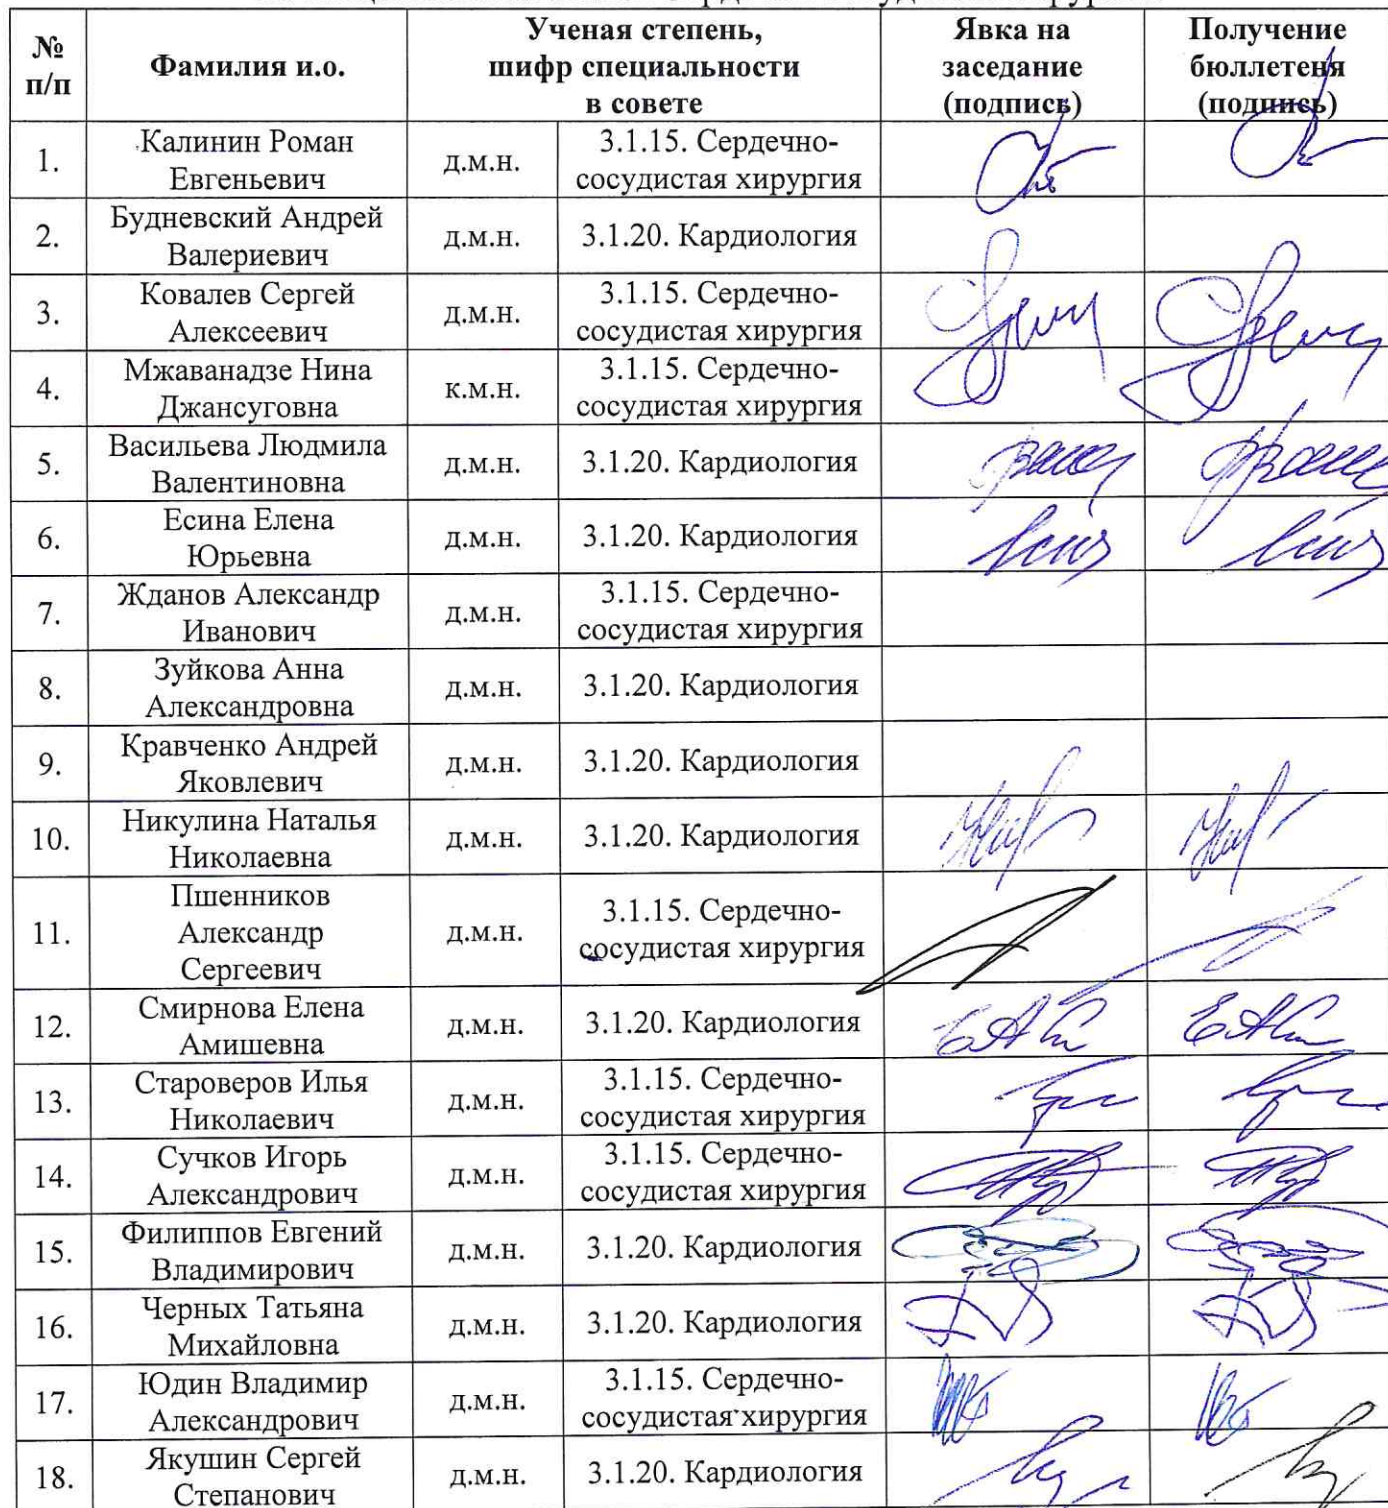 № п/п Фамилия и.о. Ученая степень, шифр специальности в совете Явка на заседание (подпись) Получение бюллетеня (подпись)
1. Калинин Роман Евгеньевич д.м.н. 3.1.15. Сердечно-сосудистая хирургия
2. Будневский Андрей Валериевич д.м.н. 3.1.20. Кардиология
3. Ковалев Сергей Алексеевич д.м.н. 3.1.15. Сердечно-сосудистая хирургия
4. Мжаванадзе Нина Джансуговна к.м.н. 3.1.15. Сердечно-сосудистая хирургия
5. Васильева Людмила Валентиновна д.м.н. 3.1.20. Кардиология
6. Есина Елена Юрьевна д.м.н. 3.1.20. Кардиология
7. Жданов Александр Иванович д.м.н. 3.1.15. Сердечно-сосудистая хирургия
8. Зуйкова Анна Александровна д.м.н. 3.1.20. Кардиология
9. Кравченко Андрей Яковлевич д.м.н. 3.1.20. Кардиология
10. Никулина Наталья Николаевна д.м.н. 3.1.20. Кардиология
11. Пшенников Александр Сергеевич д.м.н. 3.1.15. Сердечно-сосудистая хирургия
12. Смирнова Елена Амишевна д.м.н. 3.1.20. Кардиология
13. Староверов Илья Николаевич д.м.н. 3.1.15. Сердечно-сосудистая хирургия
14. Сучков Игорь Александрович д.м.н. 3.1.15. Сердечно-сосудистая хирургия
15. Филиппов Евгений Владимирович д.м.н. 3.1.20. Кардиология
16. Черных Татьяна Михайловна д.м.н. 3.1.20. Кардиология
17. Юдин Владимир Александрович д.м.н. 3.1.15. Сердечно-сосудистая хирургия
18. Якушин Сергей Степанович д.м.н. 3.1.20. Кардиология